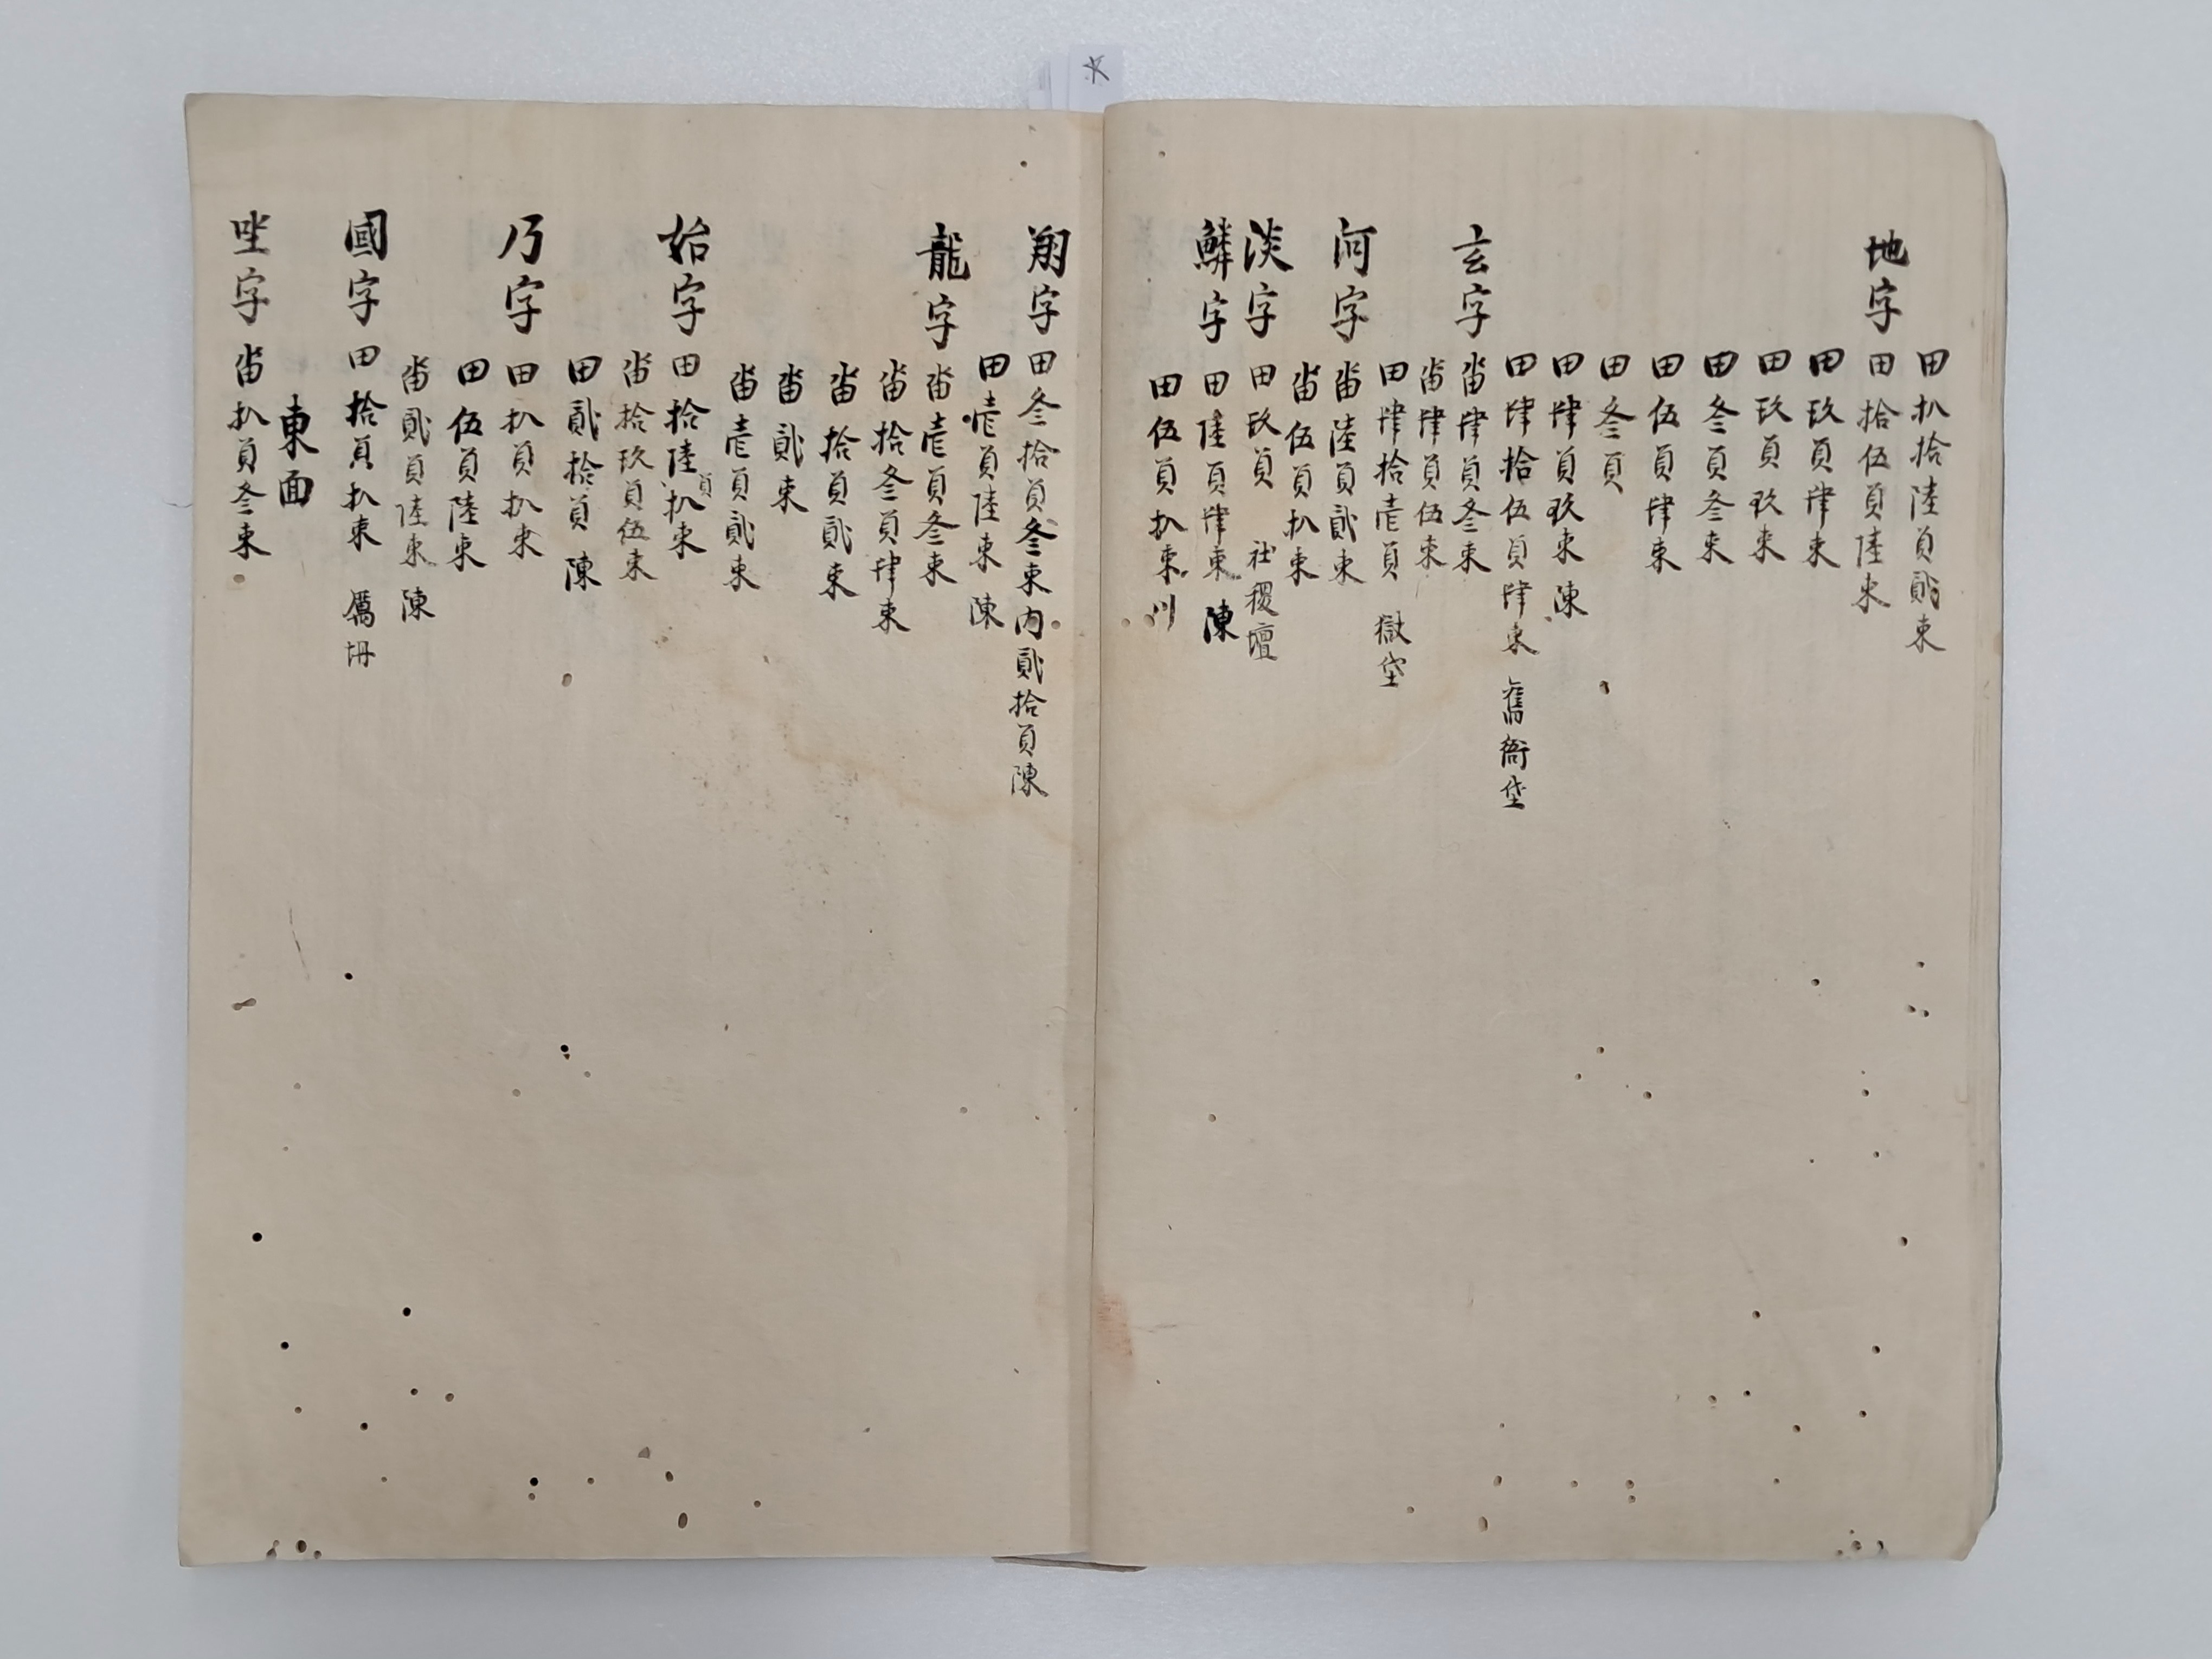 田 扒拾陸負貳束
地字 田拾伍負陸束
田玖負肆束
田玖負玖束
田叁負叁束
田伍負肆束
田叁負
田肆負玖束 陳
田肆拾伍負肆束 舊衙垈
玄字 畓肆負叁束
畓肆負伍束
田肆拾壹負 獄垈
河字 畓陸負貳束
畓伍負扒束
淡字 田玖負 社稷壇
鱗字 田陸負肆束 陳
田伍負扒束 川
翔字 田叁拾負叁束內貳拾負陳
田壹負陸束 陳
龍字 畓壹負叁束
畓拾叁負肆束
畓拾負貳束
畓貳束
畓壹負貳束
始字 田拾陸負扒束
畓拾玖負伍束
田貳拾負 陳
乃字 田扒負扒束
田伍負陸束
畓貳負陸束 陳
國字 田拾負扒束
東面
坐字 畓扒負叁束